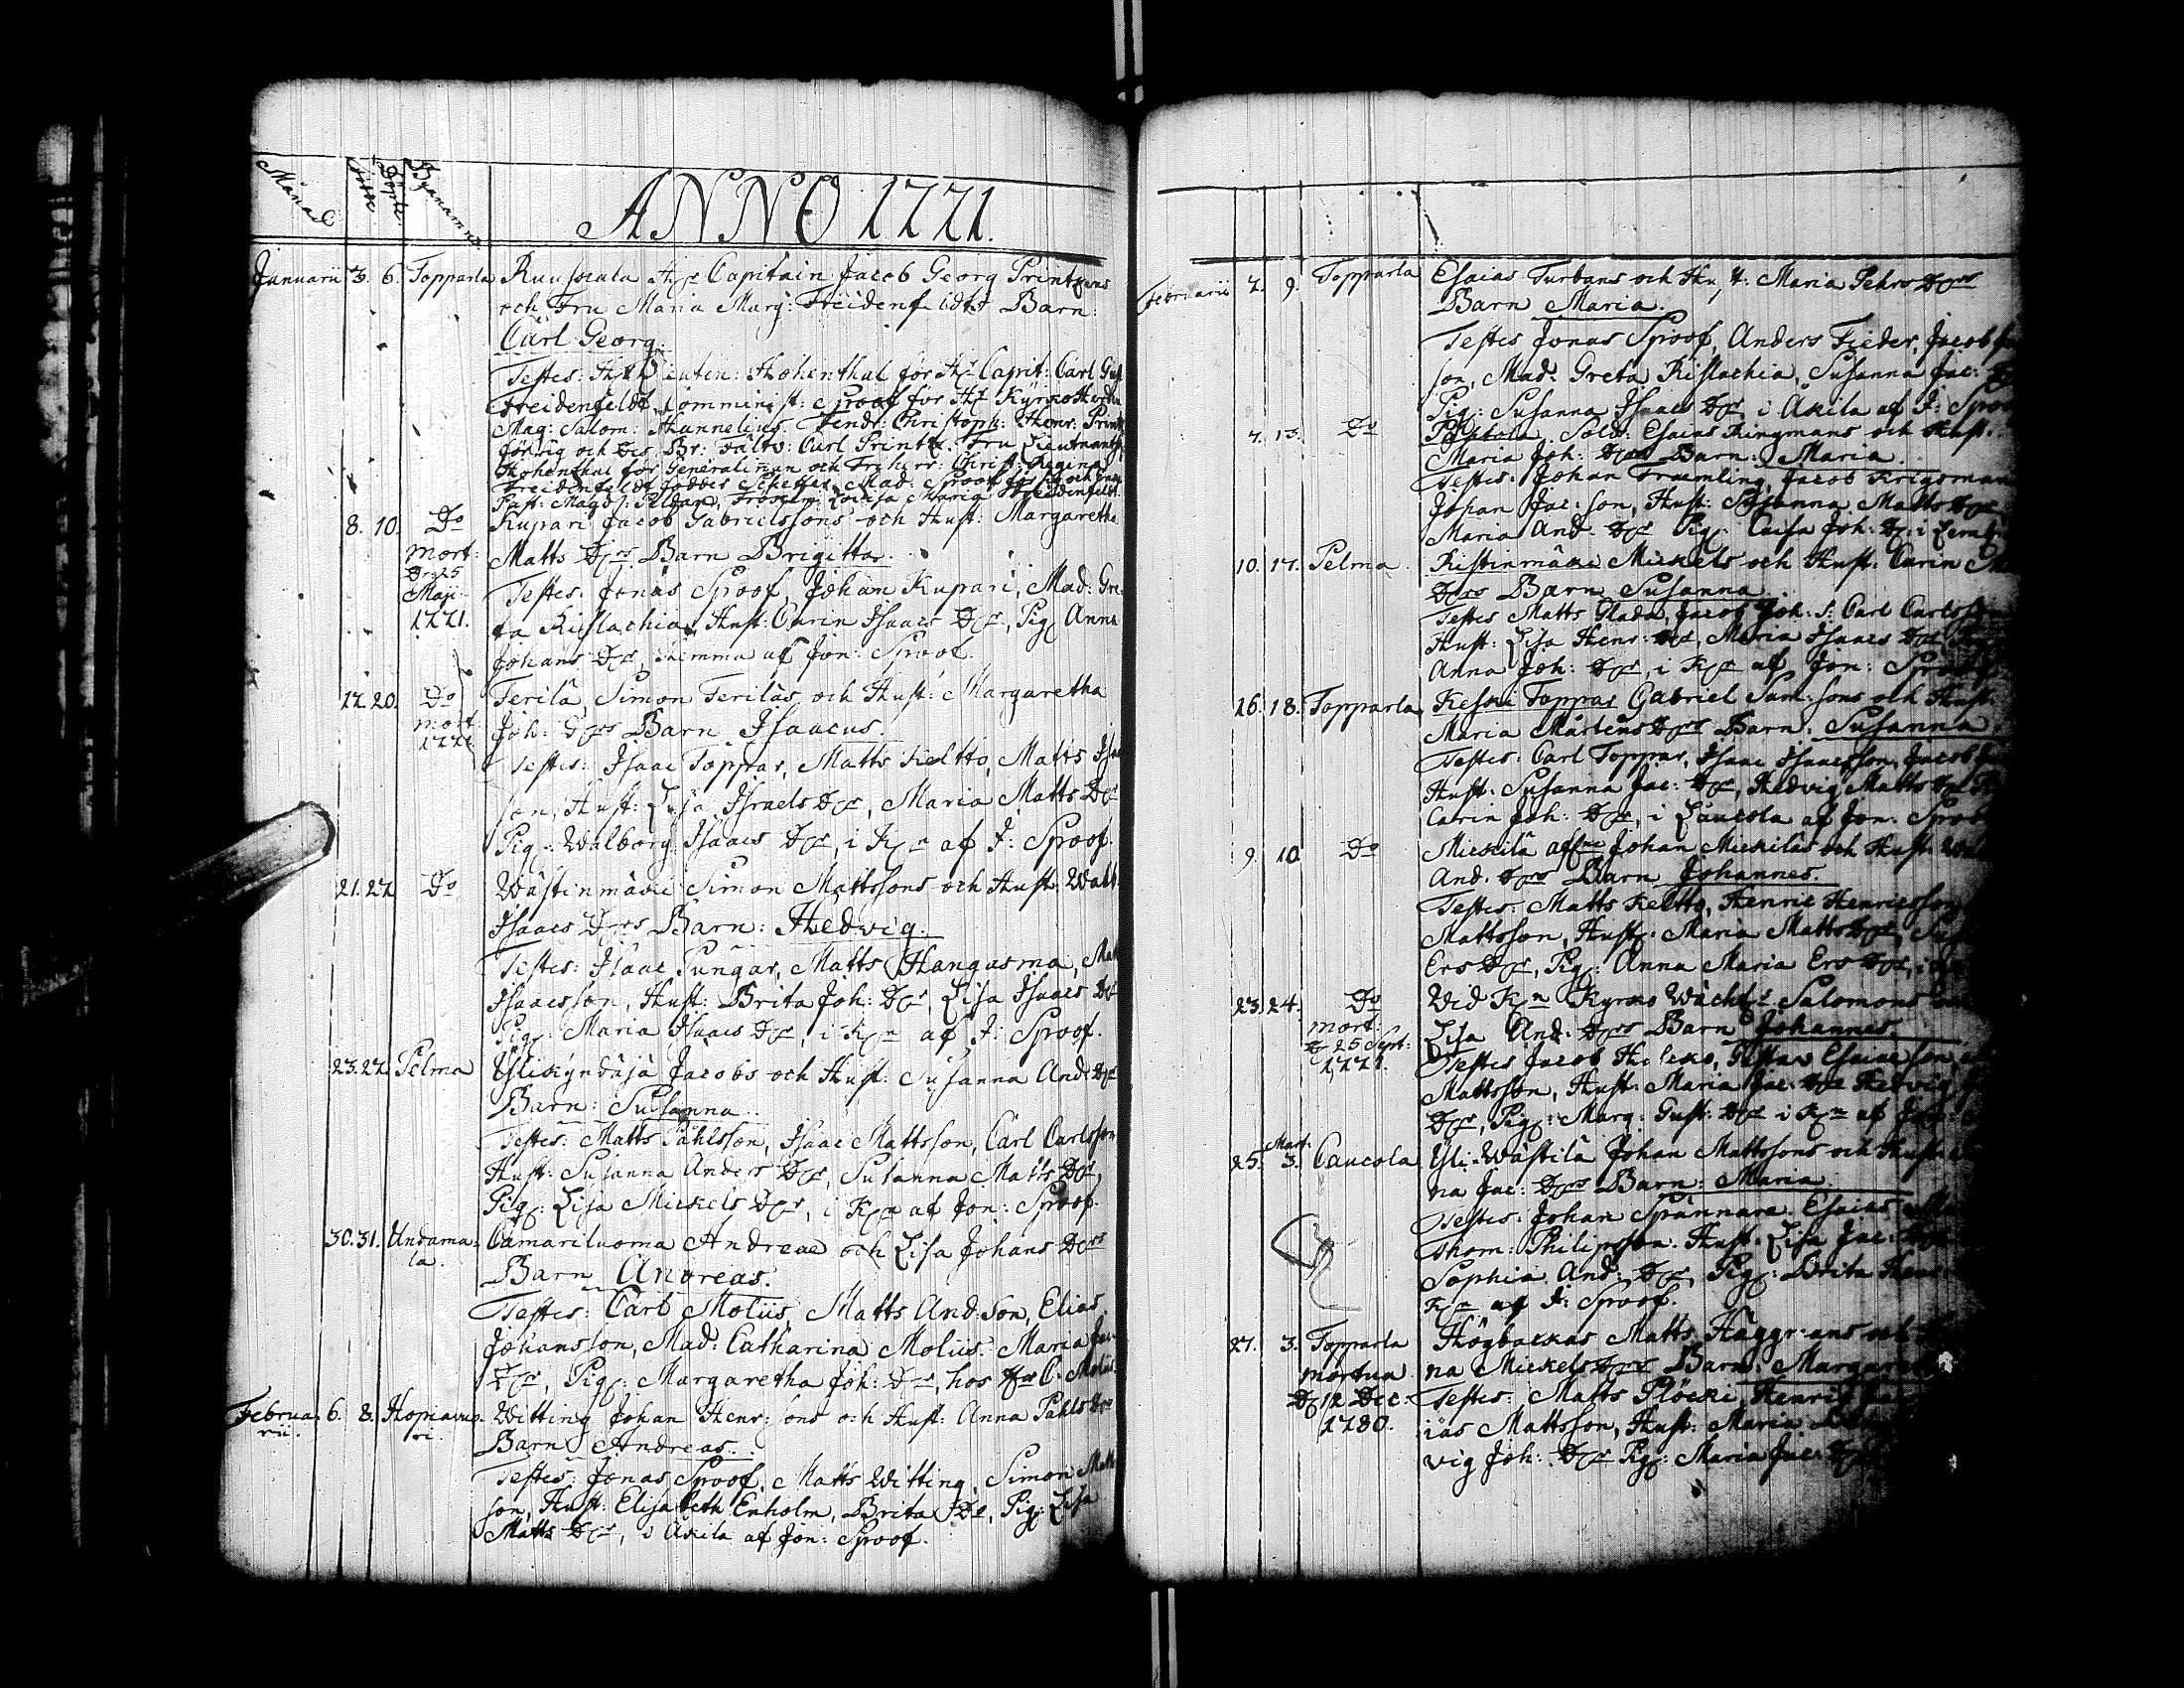 Månad Födde Döpte Byanamn
ANNO 1771.
Januarii 3. 6. Topparla Ruuskala H:r Capitain Jacob Georg Printzens
och Fru Maria Marg: Freidenfeldts Barn:
Carl Georg.
Testes: H:r Lieuten: Hohenthal för H:r Capit: Carl Gust
Freidenfeldt, Comminist: Sproof för H:r Kyrkoherden
Mag: Salom: Hannelius. Fendr: Christoph: Henr: Printz
för sig och des Br: Fältv: Carl Printz. Fru Lieutnants
Hohenthal för Generalinnan och Friherr: Christ: Regina
Freidenfeldt föddes Scheffer, Mad: Sproof för sig och
Past: Mag: Peldan, Fröken: Lovisa Maria Freidenfeldt.
8. 10. D:o Kupari Jacob Gabrielssons och Hust: Margaretha
mort: Matts D:rs Barn Brigitta.
D: 25
Maji Testes: Jonas Sproof, Johan Kupari, Mad: Gre-
1771. ta Kislachia, Hust: Carin Isaacs D:r, Pig: Anna
Johans D:r, hemma af Jon: Sproof.
17. 20. D:o Terilä, Simon Teriläs och Hust: Margaretha
mort: Joh: D:rs Barn Isaacus.
1771. Testes: Isaac Toppar, Matts Keltto, Matts Isac
son, Hust: Lisa Israels D:r, Maria Matts D:r
Pig: Walborg Isaacs D:r, i K:n af J: Sproof.
21. 27. D:o Wästinmäki Simon Mattssons och Hust: Walb
Isaacs D:rs Barn: Hedvig.
Testes: Isaac Pungar, Matts Hangasma, Matt
Isaacsson, Hust: Brita Joh: D:r, Lisa Isaacs D:r
Pig: Maria Isaacs D:r, i K:n af J: Sproof.
23. 27. Pelma Yliskyndäjä Jacobs och Hust: Susanna And: D:rs
Barn: Susanna.
Testes: Matts Påhlsson, Isaac Mattsson, Carl Carlsson
Hust: Susanna Anders D:r, Susanna Matts D:r,
Pig: Lisa Mickels D:r, i K:n af Jon: Sproof.
30. 31. Undama- Camariluoma Andreae och Lisa Johans D:rs
la. Barn Andreas.
Testes: Carl Molüs, Matts And:son, Elias
Johansson, Mad: Catharina Molüs. Maria Jac:
D:r, Pig: Margaretha Joh: D:r, hos H:r C. Molüs
Februa- 6. 8. Hopiavuo- Witting Johan Henr:sons och Hust: Anna Påhls D:rs
rii. ri. Barn Andreas.
Testes: Jonas Sproof, Matts Witting, Simon Matts
son, Hust: Elisabeth Enholm, Brita D:r, Pig: Lisa
Matts D:r, i Äkila af Jon: Sproof.
Februarii 7. 9. Topparla Esaias Turbans och Hu:t: Maria Pehrs D:rs
Barn Maria.
Testes Jonas Sproof, Anders Fieder, Jacob
son, Mad: Greta Kislachia, Susanna Jac: D:r
Pig: Susanna Isaacs D:r i Äkila af J: Sproof
7. 13. D:o Sold: Esaias Ringmans och Hust:
Maria Joh: D:rs Barn: Maria.
Testes: Johan Fræmling, Jacob Krigsman
Johan Jac:son, Hust: Susanna Matts D:r
Maria And: D:r Pig: Caisa Joh: D:r i
10. 17. Pelma Ristinmäki Mickels och Hust: Carin
D:rs Barn Susanna.
Testes Matts Glada, Jacob Joh: s: Carl Carlsson
Hust: Lisa Henr: D:r, Maria Isaacs D:r
Anna Joh: D:r, i K:n af Jon: Sproof
16. 18. Topparla Keski Toppar Gabriel Sam:sons och Hust:
Maria Mårtens D:rs Barn: Susanna
Testes: Carl Toppar, Isaac Isaacsson, Jacob
Hust: Susanna Jac: D:r, Hedvig Matts D:r
Carin Joh: D:r, i Laucola af Jon: Sproof
9. 10. D:o Mickilä Johan Mickiläs och Hust:
And: D:rs Barn Johannes.
Testes: Matts Keltto, Henric Henricsson,
Mattsson, Hust: Maria Matts D:r,
Ers D:r, Pig: Anna Maria Ers D:r,
23. 24. D:o Wid K:n Kyrko Wächt:s Salomons
mort: Lisa And: D:rs Barn Johannes
D: 25 Sept:
1771. Testes Jacob Gustav Esaiæson,
Mattsson, Hust: Maria Jac: D:r Hedvig
D:r, Pig: Marg: Gust: D:r i K:n af
25. Mart. 3. Caucola Yli-Wästilä Johan Mattssons och Hust:
na Jac: D:rs Barn: Maria.
Testes: Johan Spännara Esaias
Thom: Philipsson. Hust: Lisa Jac:
Sophia And: D:r, Pig: Brita Henr:
K:n af J: Sproof.
27. 3. Topparla Högbackas Matts Häggr:ans och
mortua na Mickels D:rs Barn: Margaret
D: 12 Dec: Testes: Matts Plöcki, Henric
1780. ias Mattsson, Hust: Maria
vig Joh: D:r Pig: Maria Jac: D:r